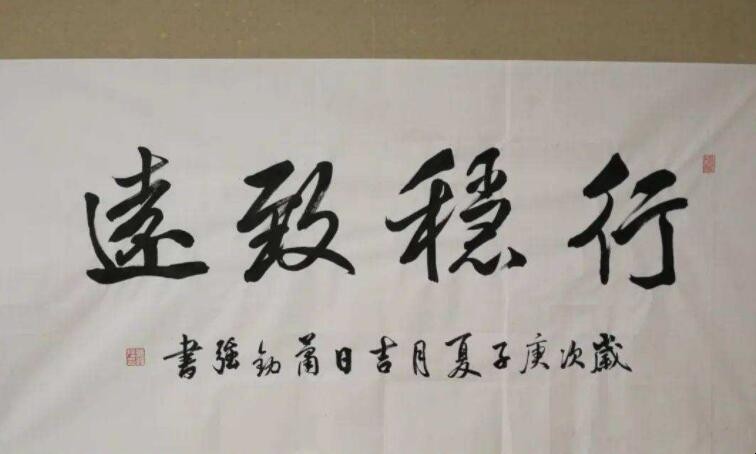 行穩致遠
歲次庚子夏月吉日蕭劲強書